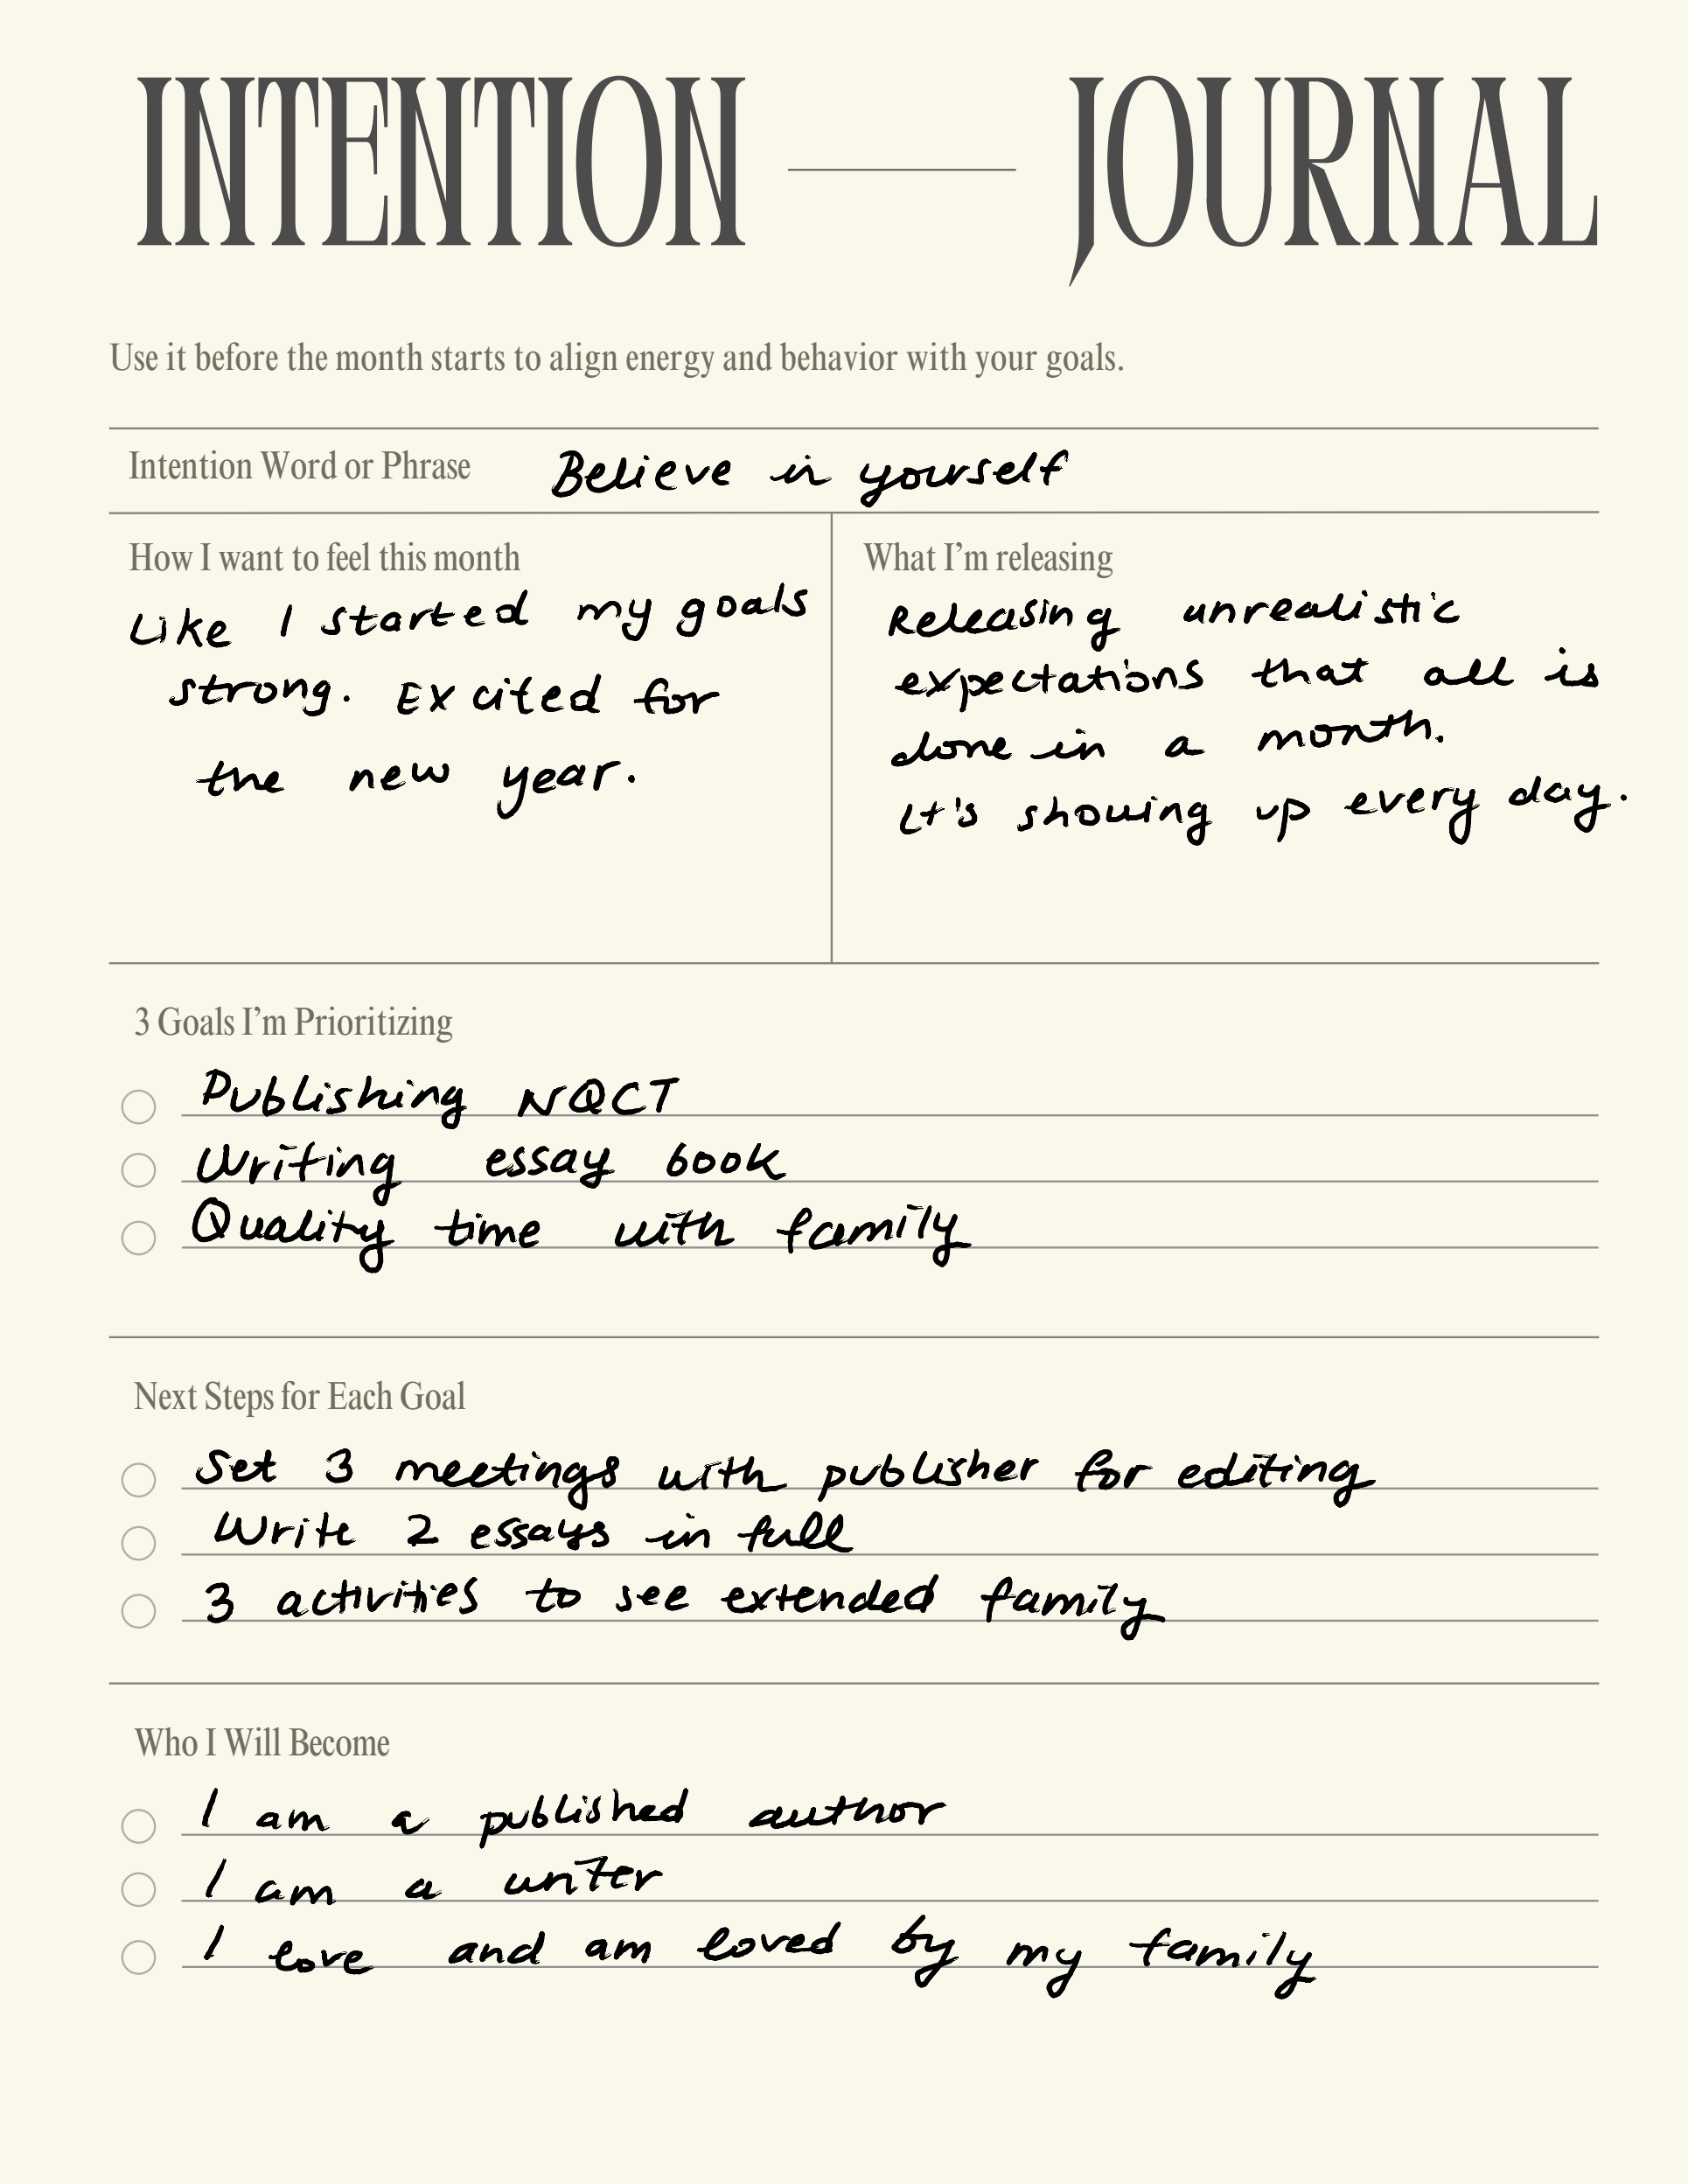 INTENTION — JOURNAL
Use it before the month starts to align energy and behavior with your goals.
Intention Word or Phrase Believe in yourself
How I want to feel this month
Like I started my goals
strong. Excited for
the new year.
What I'm releasing
Releasing unrealistic
expectations that all is
done in a month.
It's showing up every day.
3 Goals I'm Prioritizing
Publishing NQCT
Writing essay book
Quality time with family
Next Steps for Each Goal
Set 3 meetings with publisher for editing
Write 2 essays in full
3 activities to see extended family
Who I Will Become
I am a published author
I am a writer
I love and am loved by my family